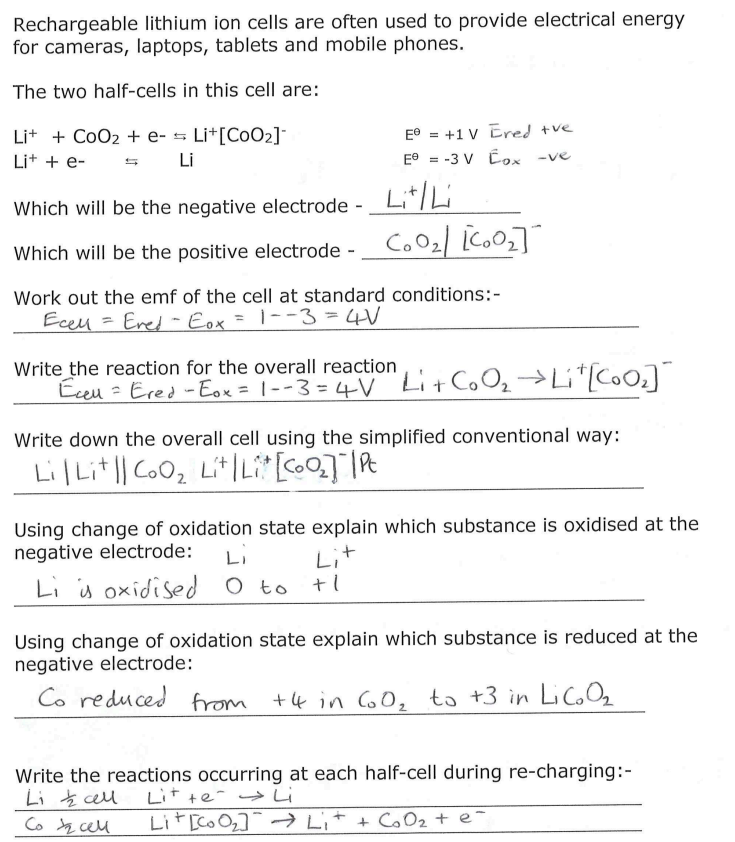 Rechargeable lithium ion cells are often used to provide electrical energy
for cameras, laptops, tablets and mobile phones.
The two half-cells in this cell are:
Li+ + CoO2 + e- ⇆ Li+[CoO2]- E⊖ = +1 V Ered +ve
Li+ + e- ⇆ Li E⊖ = -3 V Eox -ve
Which will be the negative electrode - Li⁺/Li
Which will be the positive electrode - CoO₂/[CoO₂]⁻
Work out the emf of the cell at standard conditions:-
Ecell = Ered - Eox = 1--3 = 4V
Write the reaction for the overall reaction
Ecell = Ered - Eox = 1--3 = 4V Li + CoO₂ → Li⁺[CoO₂]⁻
Write down the overall cell using the simplified conventional way:
Li | Li⁺ || CoO₂ Li⁺ | Li⁺[CoO₂]⁻ | Pt
Using change of oxidation state explain which substance is oxidised at the
negative electrode: Li Li⁺
Li is oxidised 0 to +1
Using change of oxidation state explain which substance is reduced at the
negative electrode:
Co reduced from +4 in CoO₂ to +3 in LiCoO₂
Write the reactions occurring at each half-cell during re-charging:-
Li ½ cell Li⁺ + e⁻ → Li
Co ½ cell Li⁺[CoO₂]⁻ → Li⁺ + CoO₂ + e⁻